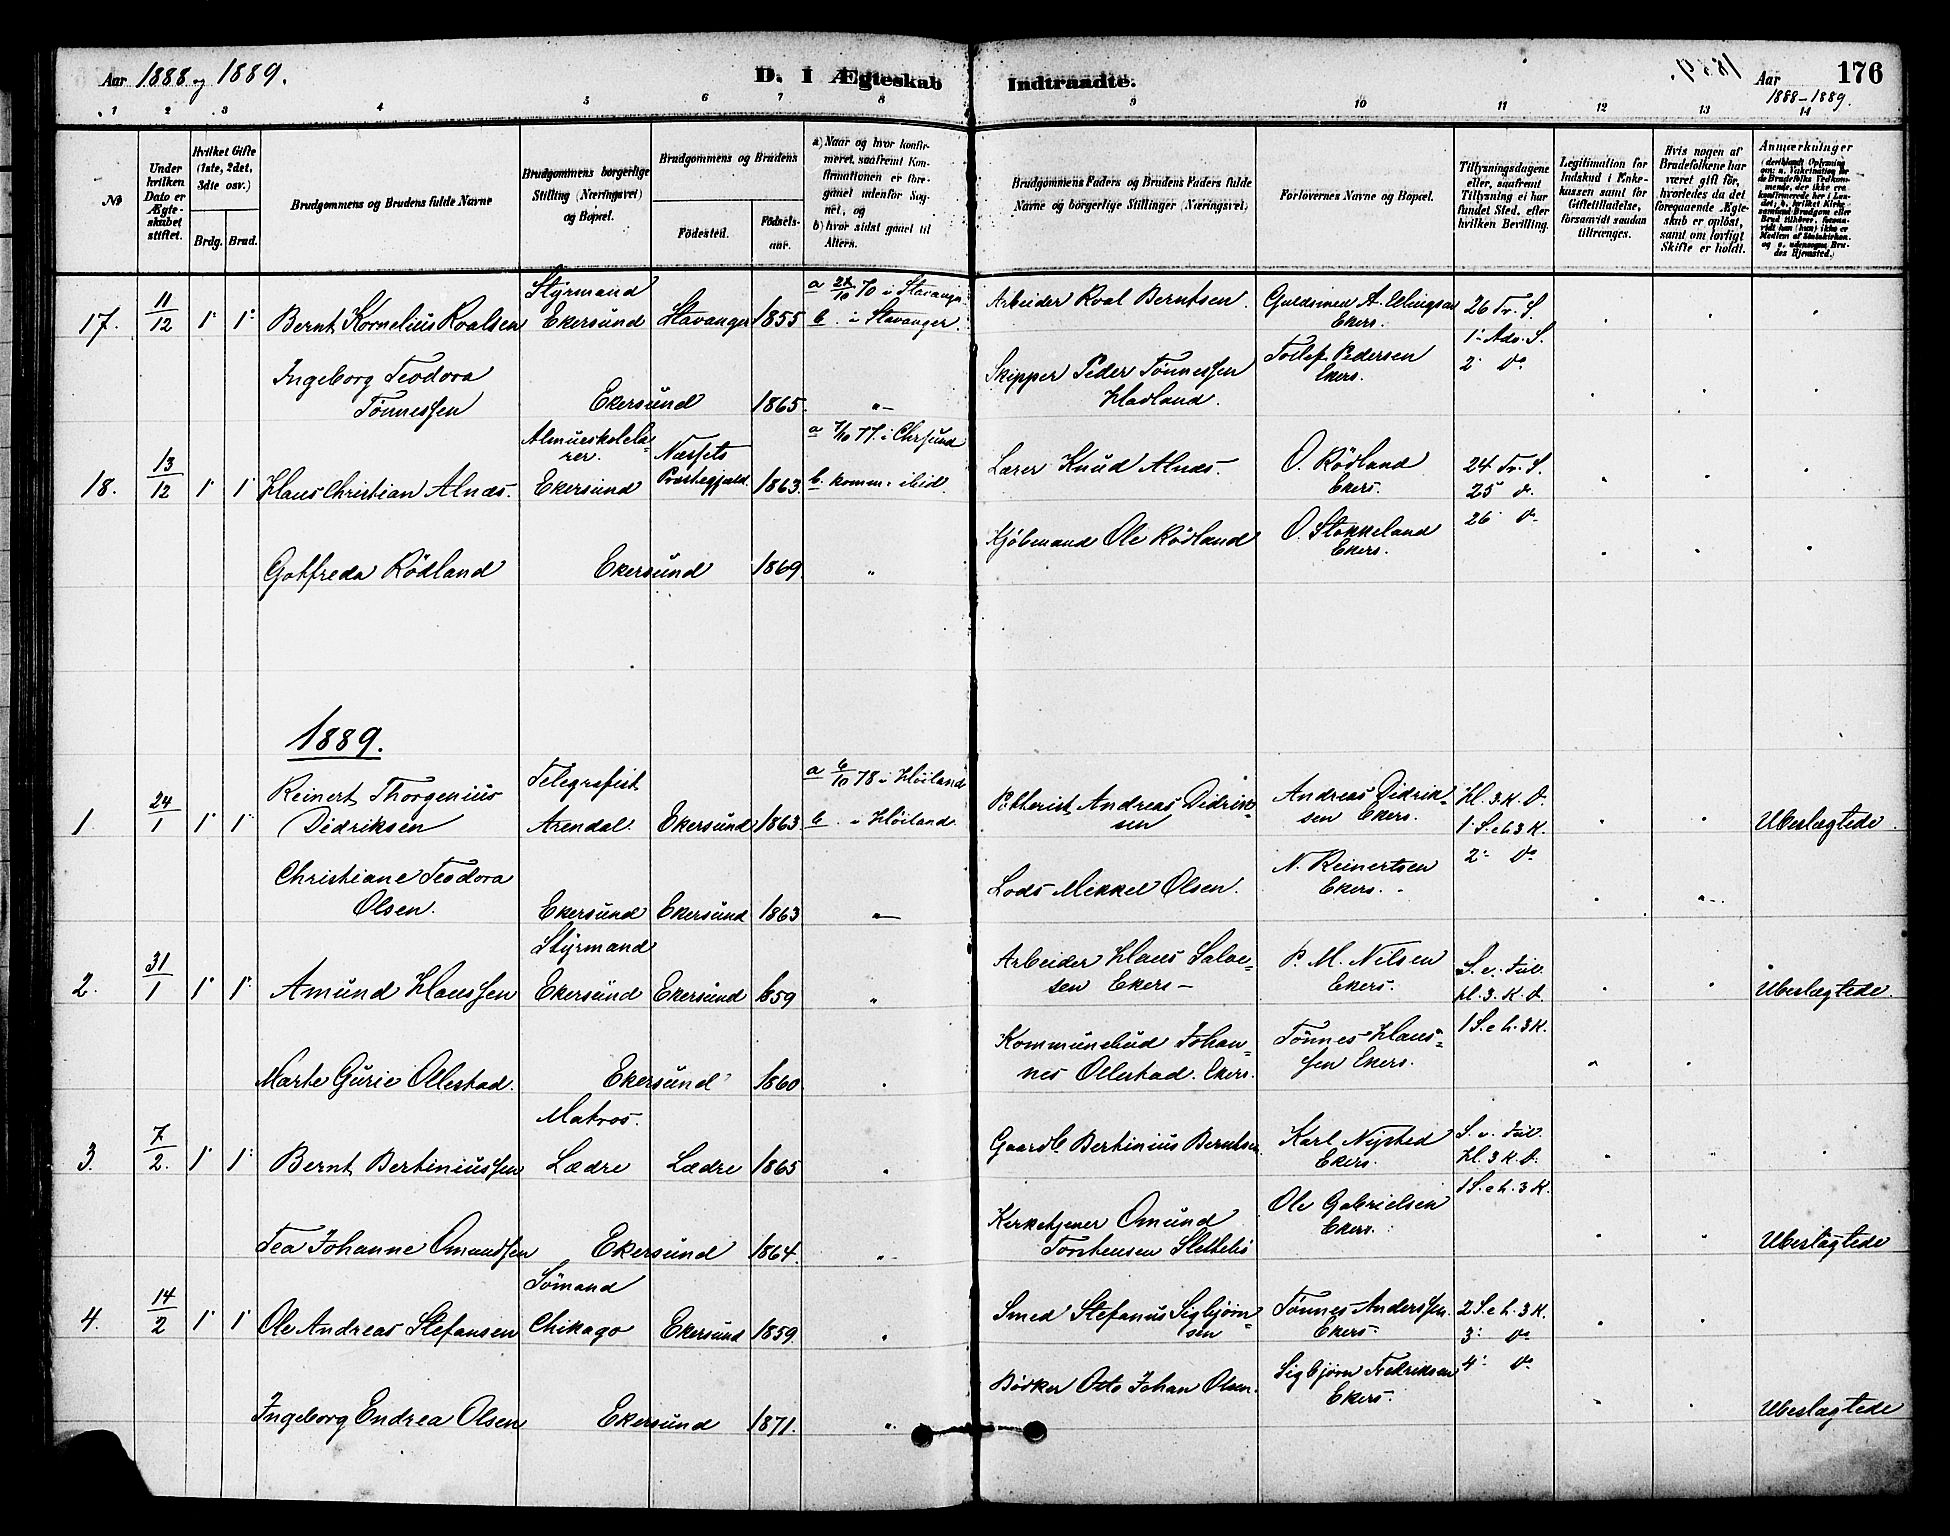 Aar 1888 og 1889.
D. I Ægteskab Indtraadte.
1889.
Aar 176
1888-1889.
1 2 3 4 5 6 7 8 9 10 11 12 13 14
№
Under hvilken Dato er Ægteskabet stiftet.
Hvilket Gifte (1ste, 2det, 3die osv.)
Brdg. Brud.
Brudgommens og Brudens fulde Navne
Brudgommens borgerlige Stilling (Næringsvei) og Bopæl.
Brudgommens og Brudens
Fødested. Fødselsaar.
a) Naar og hvor konfirmeret, saafremt Konfirmationen er foregaaet udenfor Sognet, og
b) hvor sidst gaaet til Alters.
Brudgommens Faders og Brudens Faders fulde Navne og borgerlige Stillinger (Næringsvei)
Forlovernes Navne og Bopæl.
Tillysningsdagene eller, saafremt Tillysning ei har fundet Sted, efter hvilken Bevilling.
Legitimation for Indskud i Enkekassen samt for Giftetilladelse, forsaavidt saadan tiltrænges.
Hvis nogen af Brudefolkene har været gift før, hvorledes da det foregaaende Ægteskab er opløst, samt om lovligt Skifte er holdt.
Anmærkninger
17. 11/12 1. 1. Bernt Kornelius Roalsen Styrmand Ekersund Stavanger 1855 a 2x/10 70 i Stavanger. b. i Stavanger. Arbeider Roal Berntsen. Guldsmed A. Ekers. 26 Tr. S. 1. Adv. S. 2. do
Ingeborg Teodora Tønnessen Ekersund 1865. "- Skipper Peder Tønnessen Havland. Tollef Pedersen Ekers.
18. 13/12 1. 1. Hans Christian Alnæs. Almueskolelærer. Ekersund Næssets Præstegjæld. 1863. a 7/10 77. i Chrsund b. komm. ibid. Lærer Knud Alnæs. O. Rödland Ekers. 24 Tr. S. 25 do. 26 do.
Gotfreda Rödland Ekersund 1869. " Kjøbmand Ole Rödland O. Stokkeland Ekers.
1889.
1 24/1 1. 1. Reinert Thorgenius Didriksen Telegrafist Arendal. Ekersund 1863 a 6/10 78 i Høiland b. i Høiland. Andreas Didriksen Andreas Didriksen Ekers. Hl. 3 K. D. 1. S. e. h. 3 K. 2. do Ubeslægtede.
Christiane Teodora Olsen. Ekersund Ekersund 1863 "- Lods Mikkel Olsen. N. Reinertsen Ekers.
2. 31/1 1. 1. Amund Hanssen Styrmand Ekersund Ekersund 1859 " Arbeider Hans Salvesen Ekers- P. M. Nilsen Ekers. S. e. Jul. Hl. 3. K. D. 1 S. e. h. 3 K. Ubeslægtede.
Marte Gurie Ollestad. Ekersund 1860 Kommunebud Johannes Ollestad. Ekers. Tönnes Hanssen Ekers.
3. 7/2. 1. 1. Bernt Bertiniussen Matros. Lædre Lædre 1865 Gaardb. Bertinius Berntsen. Karl Nysted Ekers. S. e. Jul. Hl. 3 K. D. 1 S. e. h. 3 K.
Tea Johanne Omundsen Ekersund 1864. " Kirketjener Omund Torstensen Slettebö Ole Gabrielsen Ekers. Ubeslægtede
4. 14/2 1. 1. Ole Andreas Stefansen Sömand Chikago Ekersund 1859. Smed Stefanus Sigbjørnsen Tönnes Anderssen. Ekers. 2 S. e. h. 3 K. 3. do 4. do
Ingeborg Endrea Olsen Ekersund 1871. " Bödker Otto Johan Olsen. Sigbjörn Fredriksen Ekers. Ubeslægtede